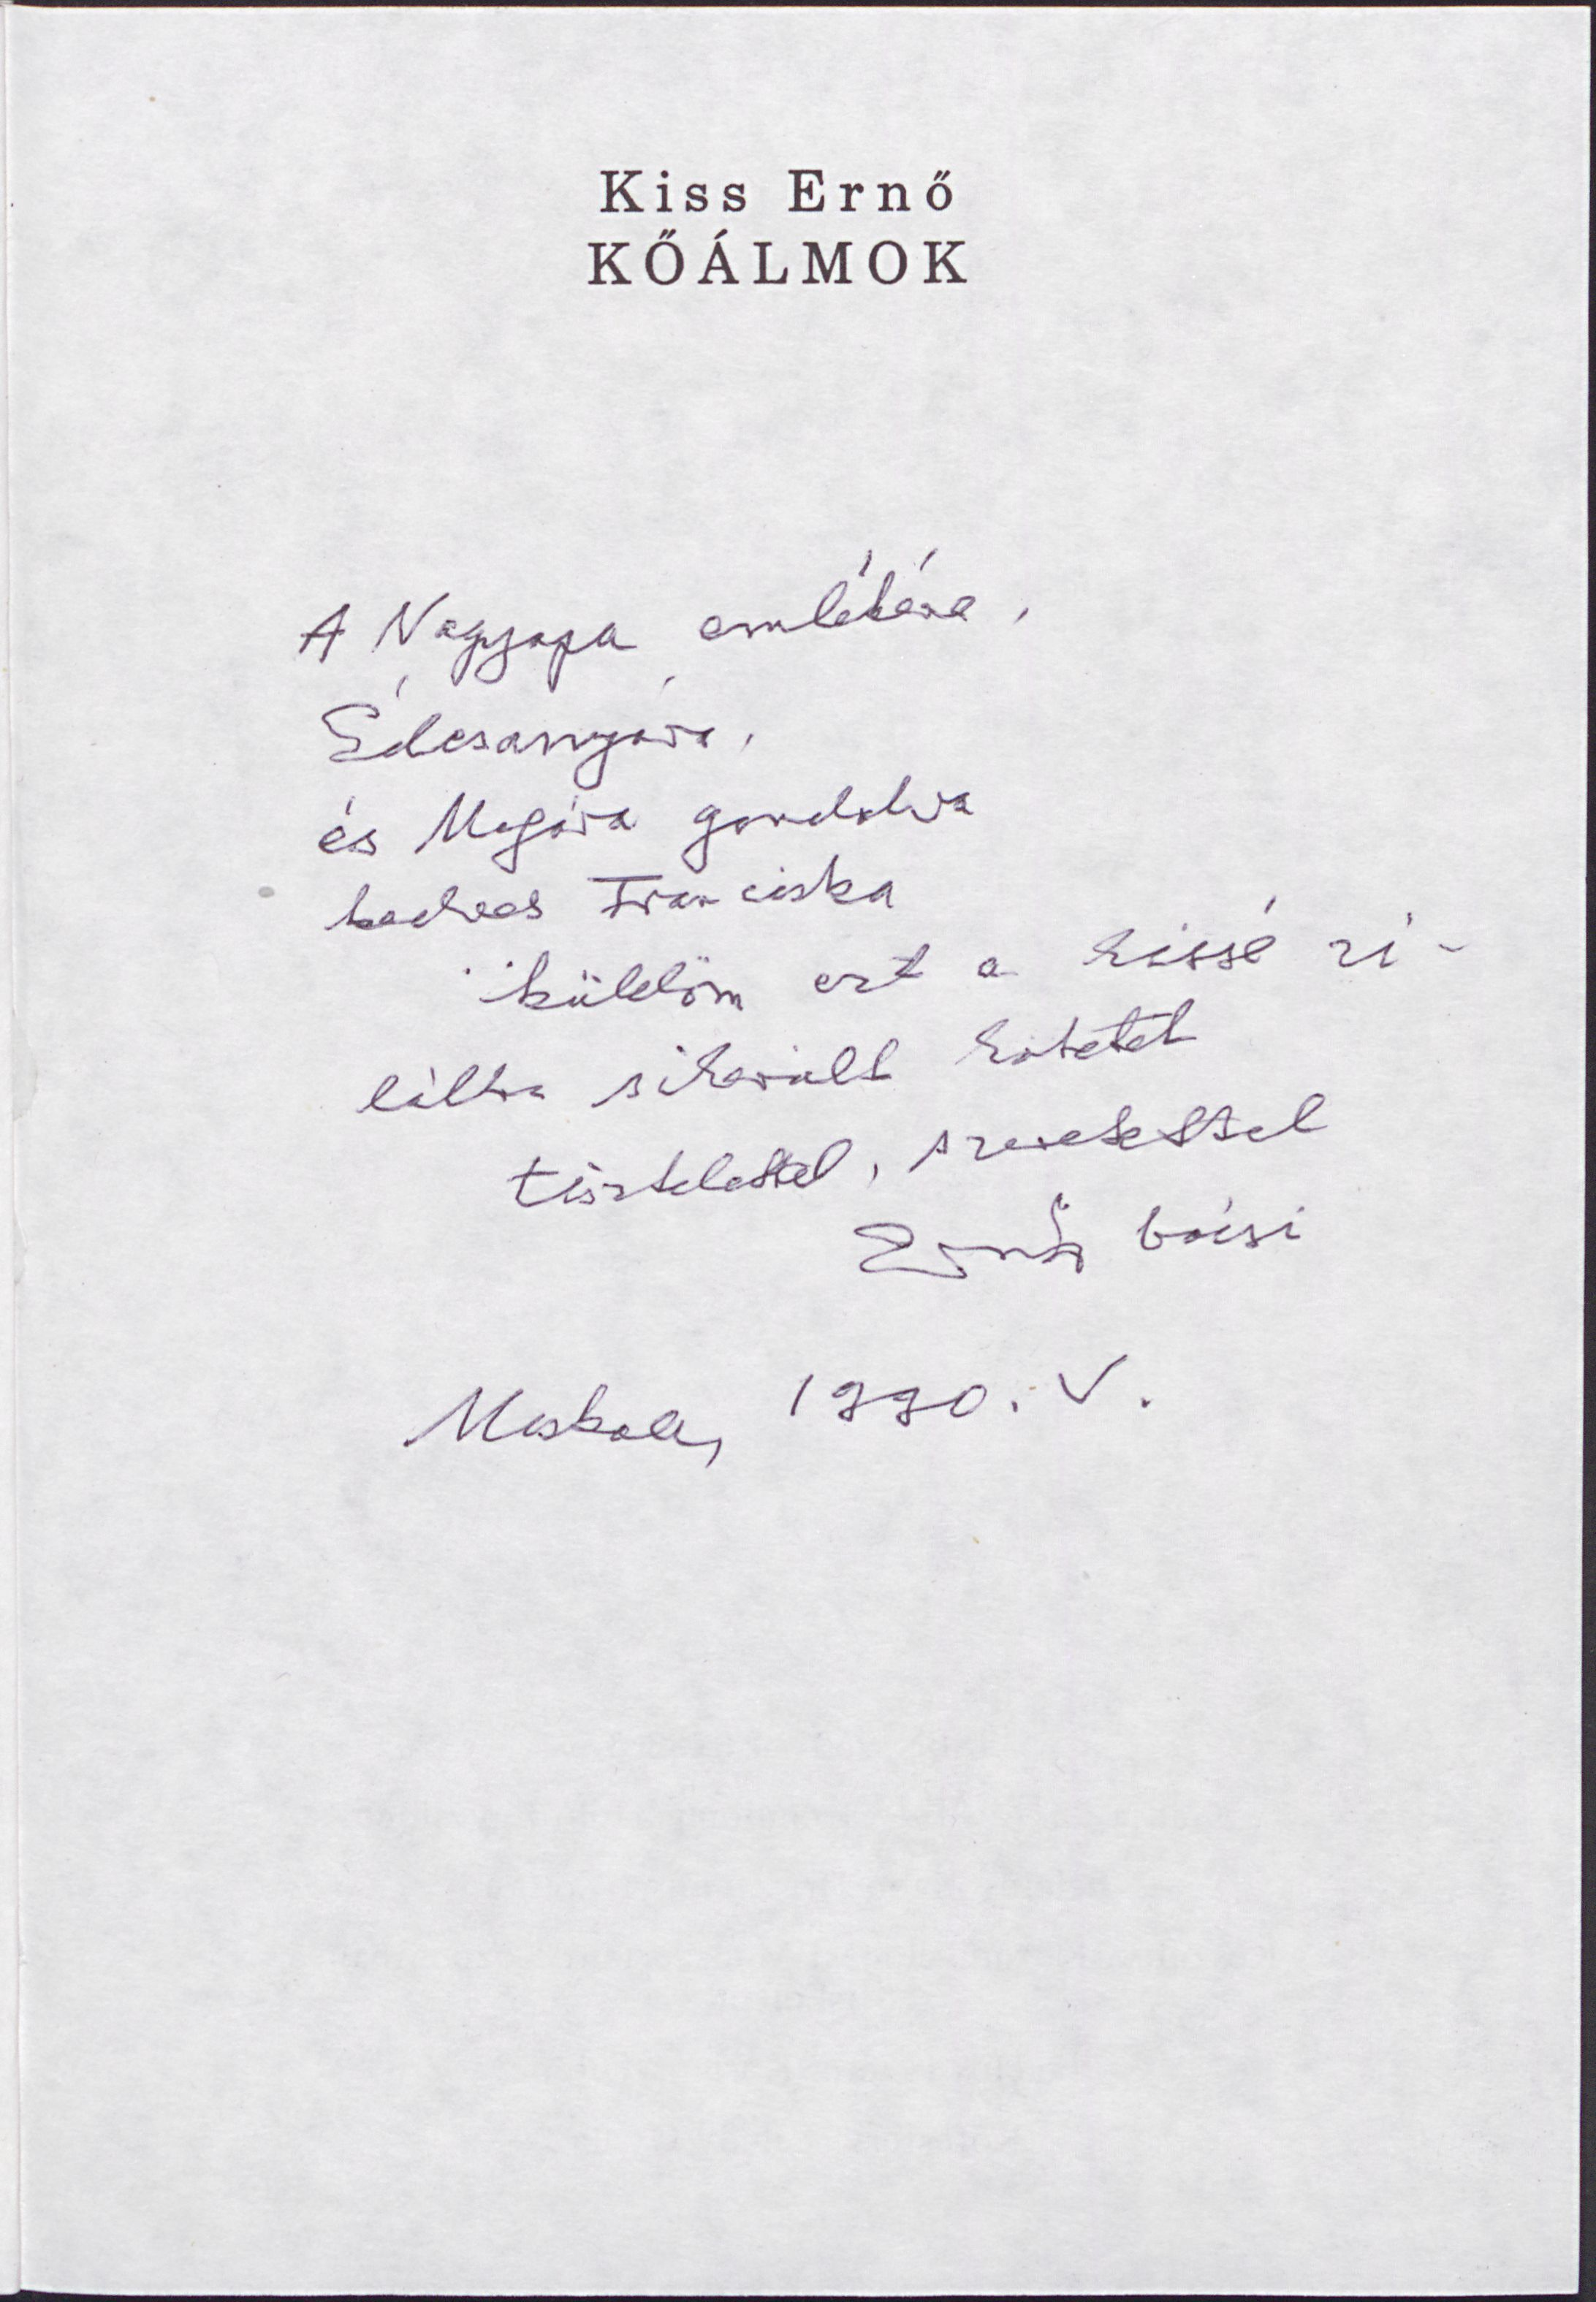 Kiss Ernő
KŐÁLMOK
A Nagyapa emlékére,
Édesanyára,
és Magára gondolva
kedves Franciska
küldöm ezt a kissé zi-
láltra sikerült kötetet
tisztelettel, szeretettel
Ernő bácsi
1990. V.